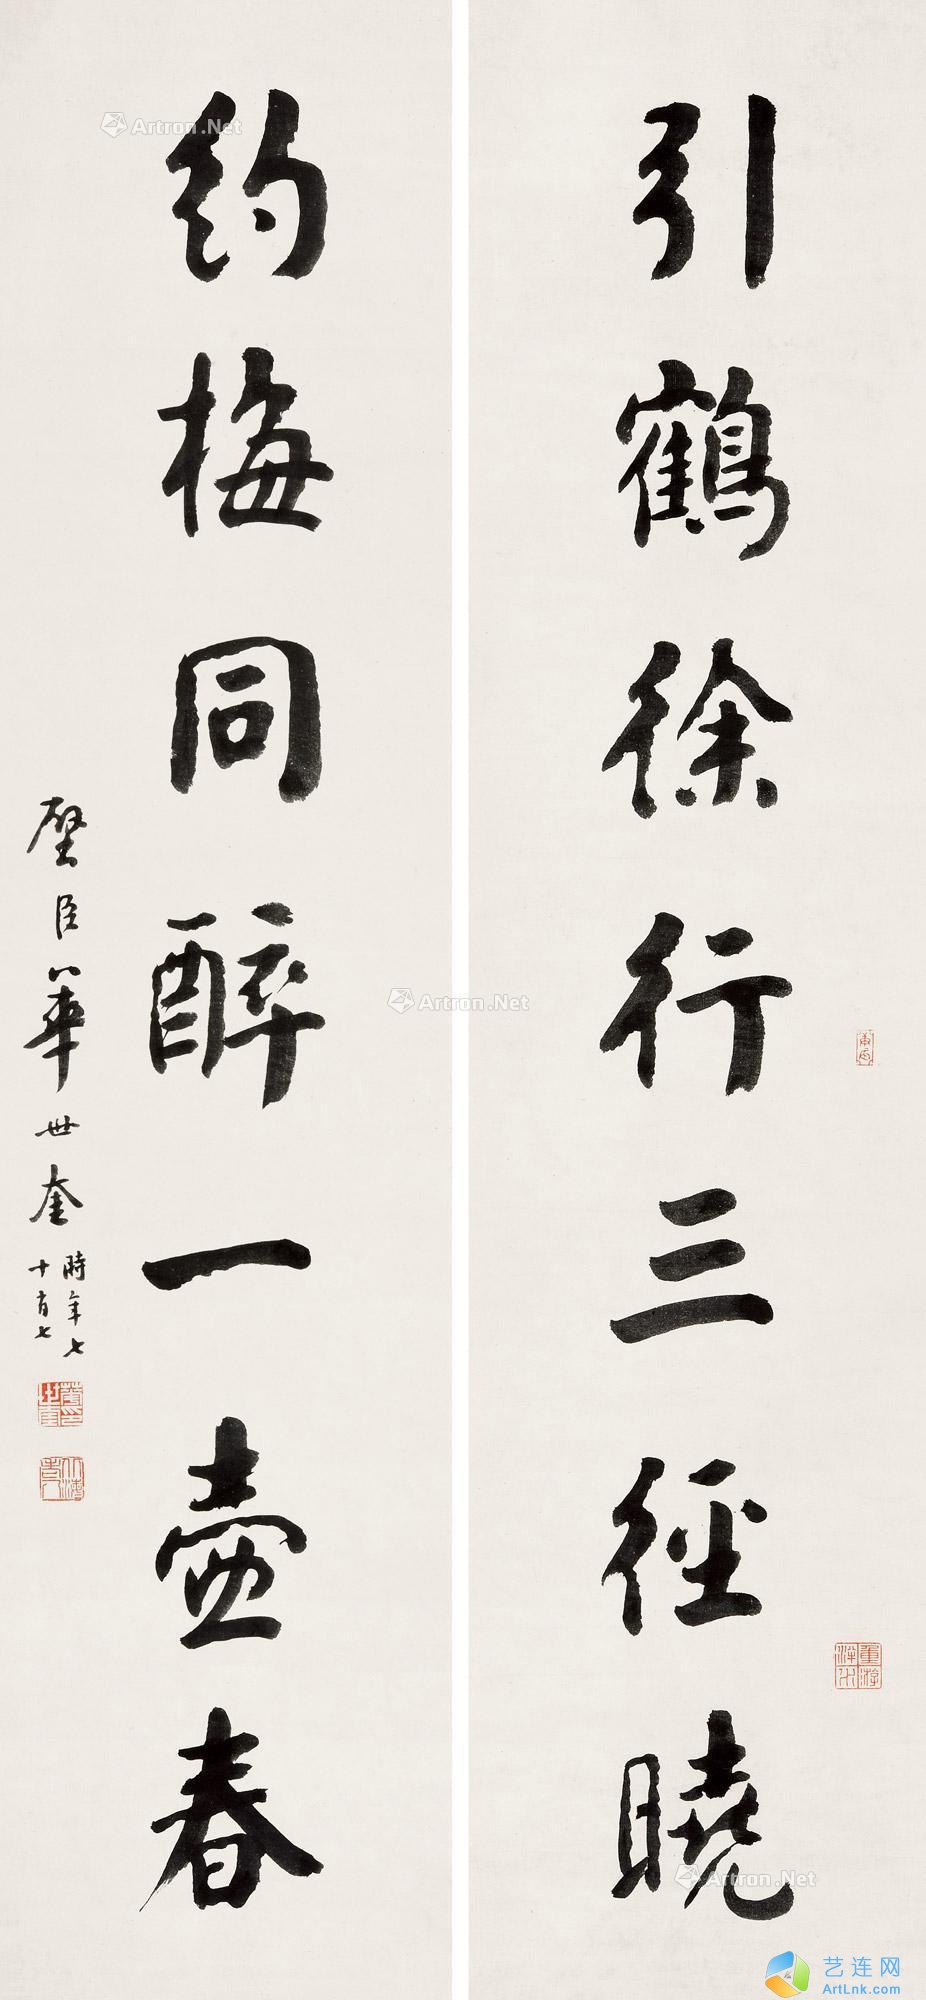 引鶴徐行三徑曉
約梅同醉一壺春
璧臣華世奎
時年七
十有七
重游泮水
Artron.Net
Artron.Net
Artron.Net
艺连网
ArtLnk.com